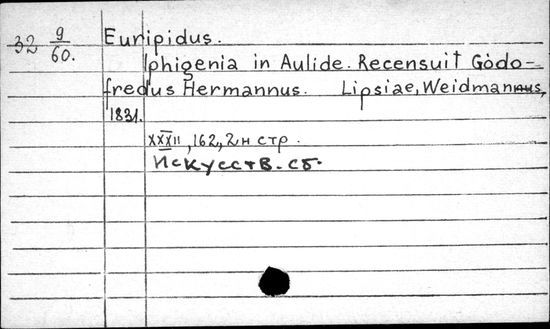 32 9/60. Euripidus.
Iphigenia in Aulide. Recensuit Godo-
fredus Hermannus. Lipsiae, Weidmannus,
1831.
XXXII, 162, 2н стр.
Искусств. сб.